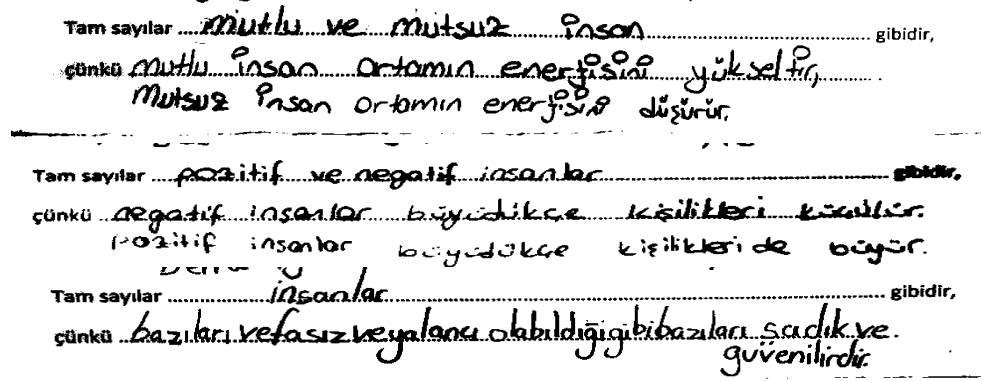 Tam sayılar ....mutlu ve mutsuz insan.... gibidir,
çünkü mutlu insan ortamın enerjisini yükseltir,
mutsuz insan ortamın enerjisini düşürür.
Tam sayılar ....pozitif ve negatif insanlar.... gibidir,
çünkü negatif insanlar büyüdükçe kişilikleri küçülür.
Pozitif insanlar büyüdükçe kişilikleri de büyür.
Tam sayılar ....insanlar.... gibidir,
çünkü bazıları vefasız ve yalancı olabildiği gibi bazıları sadık ve
güvenilirdir.